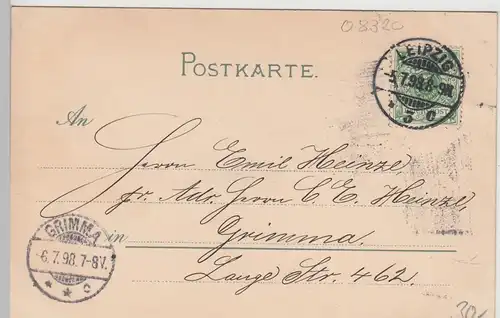 Q8320
LEIPZIG
5.7.98.8-9N.
* 3 c
POSTKARTE.
An
Herrn Emil Heinze,
pr. Adr. Herrn C. E. Heinze
in Grimma.
Lange Str. 462.
GRIMMA
6.7.98.7-8V.
* * c